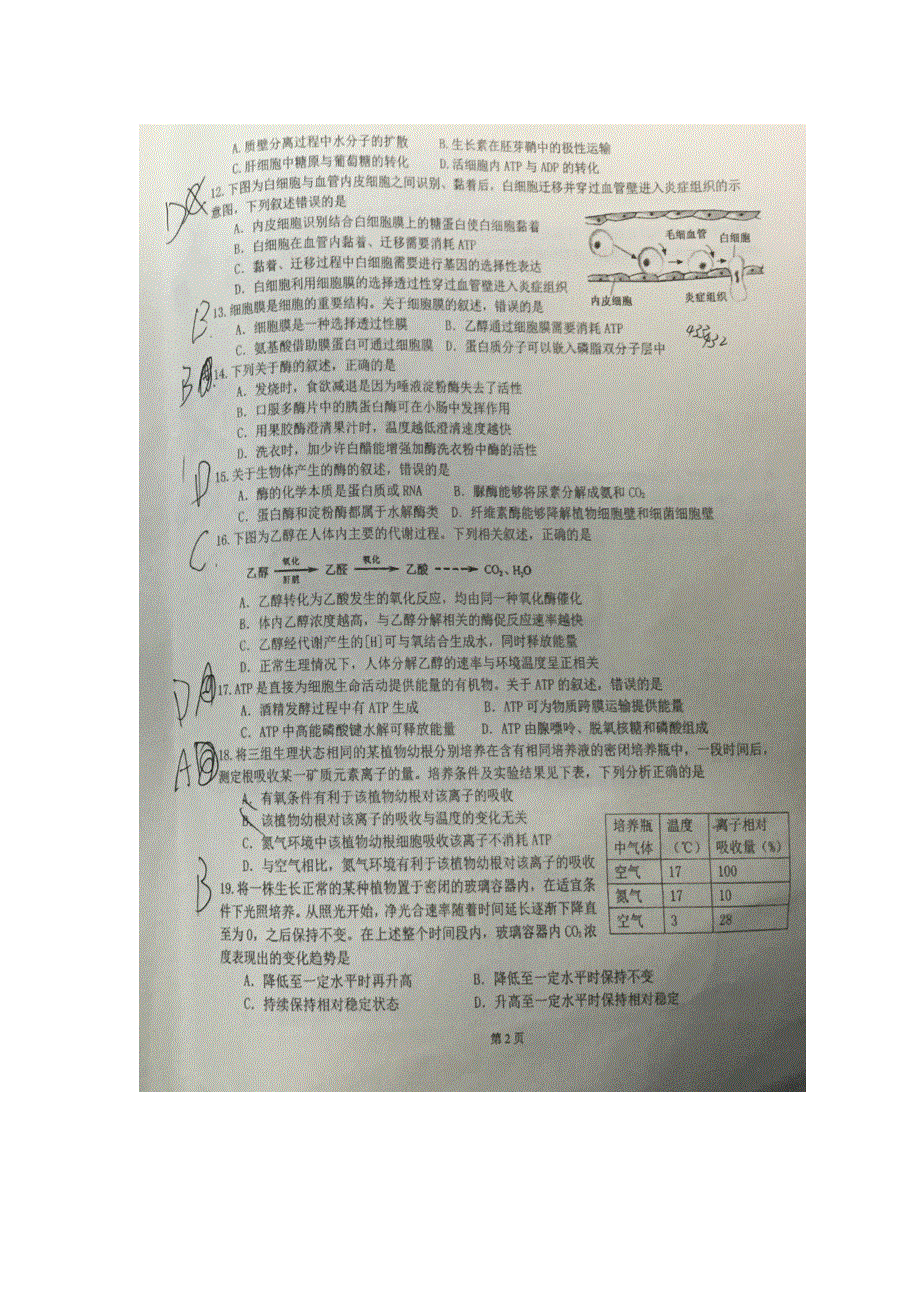 A.质壁分离过程中水分子的扩散 B.生长素在胚芽鞘中的极性运输
C.肝细胞中糖原与葡萄糖的转化 D.活细胞内ATP与ADP的转化
D
12.下图为白细胞与血管内皮细胞之间识别、黏着后，白细胞迁移并穿过血管壁进入炎症组织的示
意图，下列叙述错误的是
A. 内皮细胞识别结合白细胞膜上的糖蛋白使白细胞黏着
B. 白细胞在血管内黏着、迁移需要消耗ATP
C. 黏着、迁移过程中白细胞需要进行基因的选择性表达
D. 白细胞利用细胞膜的选择透过性穿过血管壁进入炎症组织
毛细血管 白细胞
内皮细胞 炎症组织
B
13.细胞膜是细胞的重要结构。关于细胞膜的叙述，错误的是
A. 细胞膜是一种选择透过性膜 B. 乙醇通过细胞膜需要消耗ATP
C. 氨基酸借助膜蛋白可通过细胞膜 D. 蛋白质分子可以嵌入磷脂双分子层中
B
14.下列关于酶的叙述，正确的是
A. 发烧时，食欲减退是因为唾液淀粉酶失去了活性
B. 口服多酶片中的胰蛋白酶可在小肠中发挥作用
C. 用果胶酶澄清果汁时，温度越低澄清速度越快
D. 洗衣时，加少许白醋能增强加酶洗衣粉中酶的活性
D
15.关于生物体产生的酶的叙述，错误的是
A. 酶的化学本质是蛋白质或RNA B. 脲酶能够将尿素分解成氨和CO₂
C. 蛋白酶和淀粉酶都属于水解酶类 D. 纤维素酶能够降解植物细胞壁和细菌细胞壁
C
16.下图为乙醇在人体内主要的代谢过程。下列相关叙述，正确的是
乙醇 氧化 肝脏 乙醛 氧化 乙酸 CO₂、H₂O
A. 乙醇转化为乙酸发生的氧化反应，均由同一种氧化酶催化
B. 体内乙醇浓度越高，与乙醇分解相关的酶促反应速率越快
C. 乙醇经代谢产生的[H]可与氧结合生成水，同时释放能量
D. 正常生理情况下，人体分解乙醇的速率与环境温度呈正相关
D
17.ATP是直接为细胞生命活动提供能量的有机物。关于ATP的叙述，错误的是
A. 酒精发酵过程中有ATP生成 B. ATP可为物质跨膜运输提供能量
C. ATP中高能磷酸键水解可释放能量 D. ATP由腺嘌呤、脱氧核糖和磷酸组成
A
18.将三组生理状态相同的某植物幼根分别培养在含有相同培养液的密闭培养瓶中，一段时间后，
测定根吸收某一矿质元素离子的量。培养条件及实验结果见下表，下列分析正确的是
A. 有氧条件有利于该植物幼根对该离子的吸收
B. 该植物幼根对该离子的吸收与温度的变化无关
C. 氮气环境中该植物幼根细胞吸收该离子不消耗ATP
D. 与空气相比，氮气环境有利于该植物幼根对该离子的吸收
培养瓶中气体 温度（℃） 离子相对吸收量（%）
空气 17 100
氮气 17 10
空气 3 28
B
19.将一株生长正常的某种植物置于密闭的玻璃容器内，在适宜条
件下光照培养。从照光开始，净光合速率随着时间延长逐渐下降直
至为0，之后保持不变。在上述整个时间段内，玻璃容器内CO₂浓
度表现出的变化趋势是
A. 降低至一定水平时再升高 B. 降低至一定水平时保持不变
C. 持续保持相对稳定状态 D. 升高至一定水平时保持相对稳定
第2页